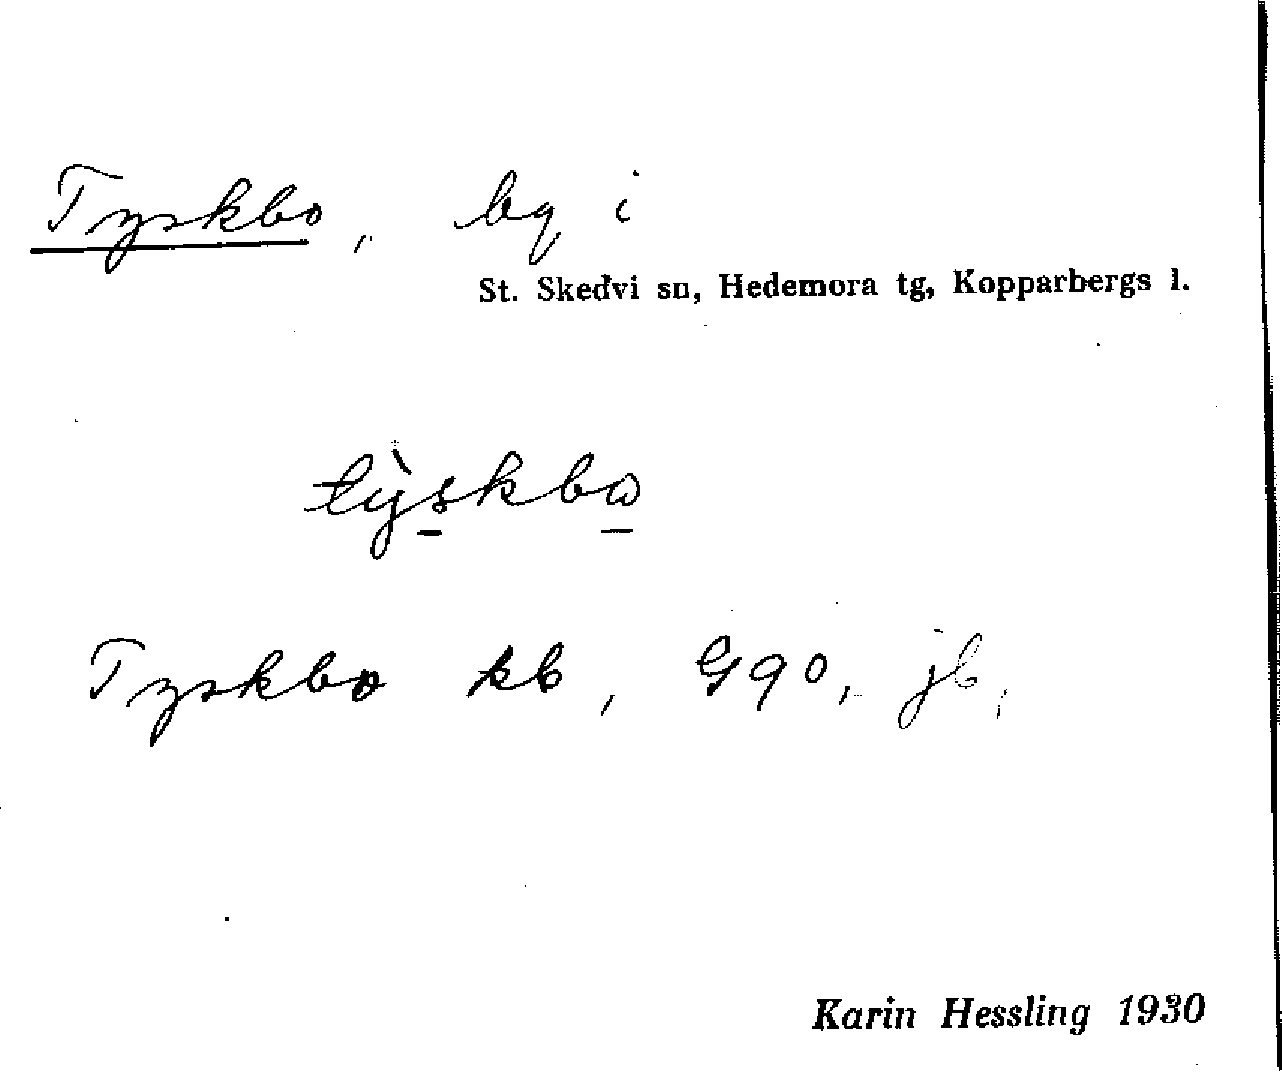 Tyskbo, by i
St. Skedvi sn, Hedemora tg, Kopparbergs l.
tỳskbω
Tyskbo kb, G90, jb,
Karin Hessling 1930